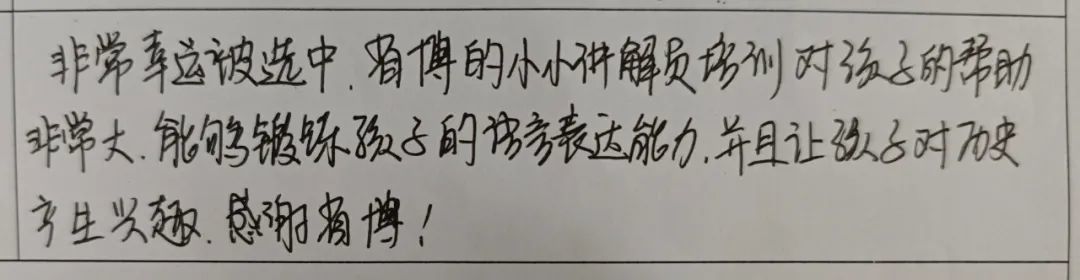 非常幸运被选中.省博的小小讲解员培训对孩子的帮助
非常大.能够锻炼孩子的语言表达能力.并且让孩子对历史
产生兴趣.感谢省博!